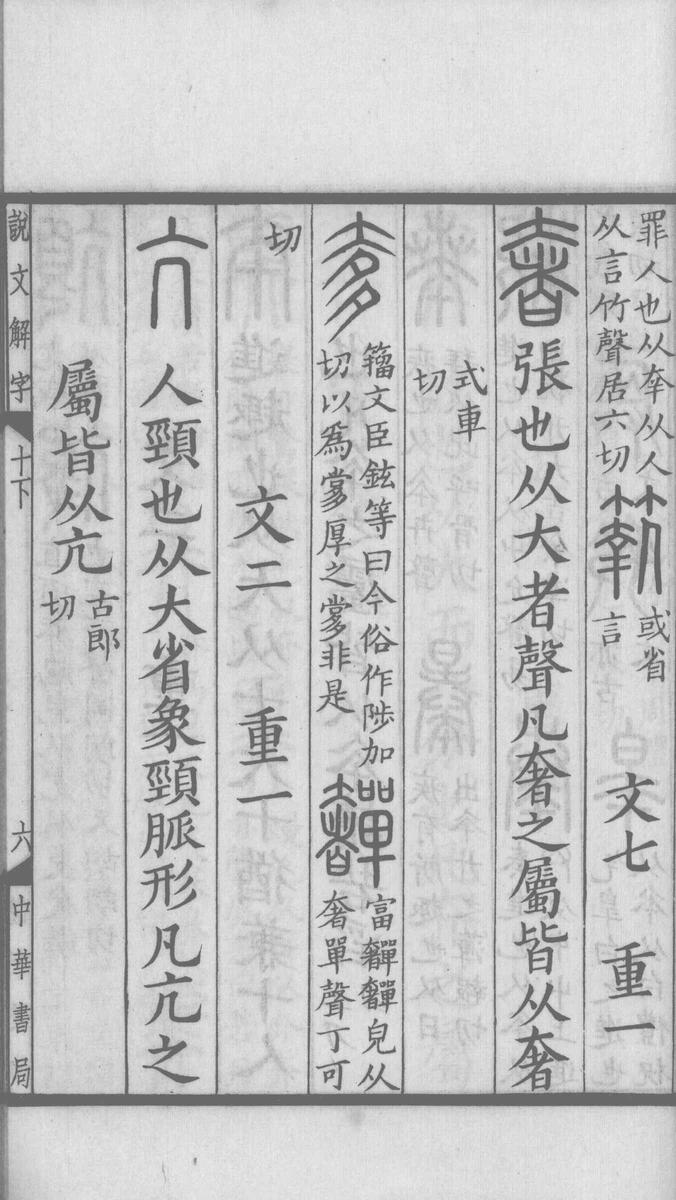 罪人也从㚔从人
从言竹聲居六切
𥷚
或省
言
文七
重一
奢
張也从大者聲凡奢之屬皆从奢
式車
切
奓
籒文臣鉉等曰今俗作陟加
切以爲㚌厚之㚌非是
奲
富奲奲皃从
奢單聲丁可
切
文二
重一
亢
人頸也从大省象頸脈形凡亢之
屬皆从亢
古郎
切
說文解字
十下
六
中華書局